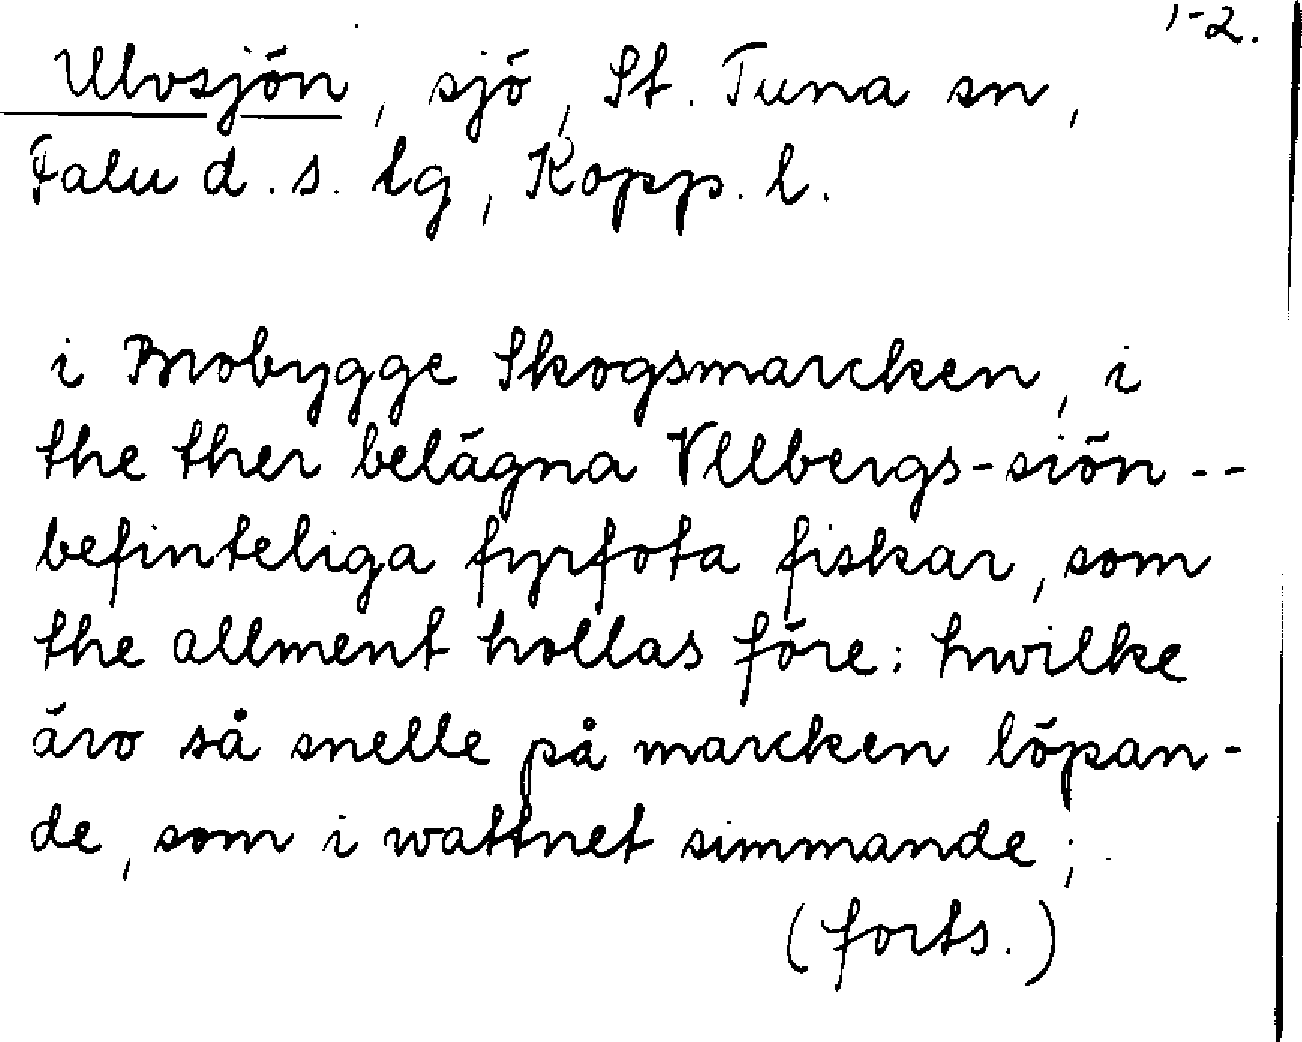 1-2.
Ulvsjön, sjö, St. Tuna sn,
Falu d. s. lg, Kopp. l.
i Brobygge Skogsmarcken, i
the ther belägna Vllbergs-siön --
befinteliga fyrfota fiskar, som
the allment hollas före: hwilke
äro så snelle på marcken löpan-
de, som i wattnet simmande;
(forts.)